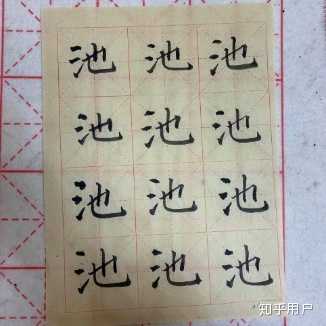 池池池
池池池
池池池
池池池
知乎用户